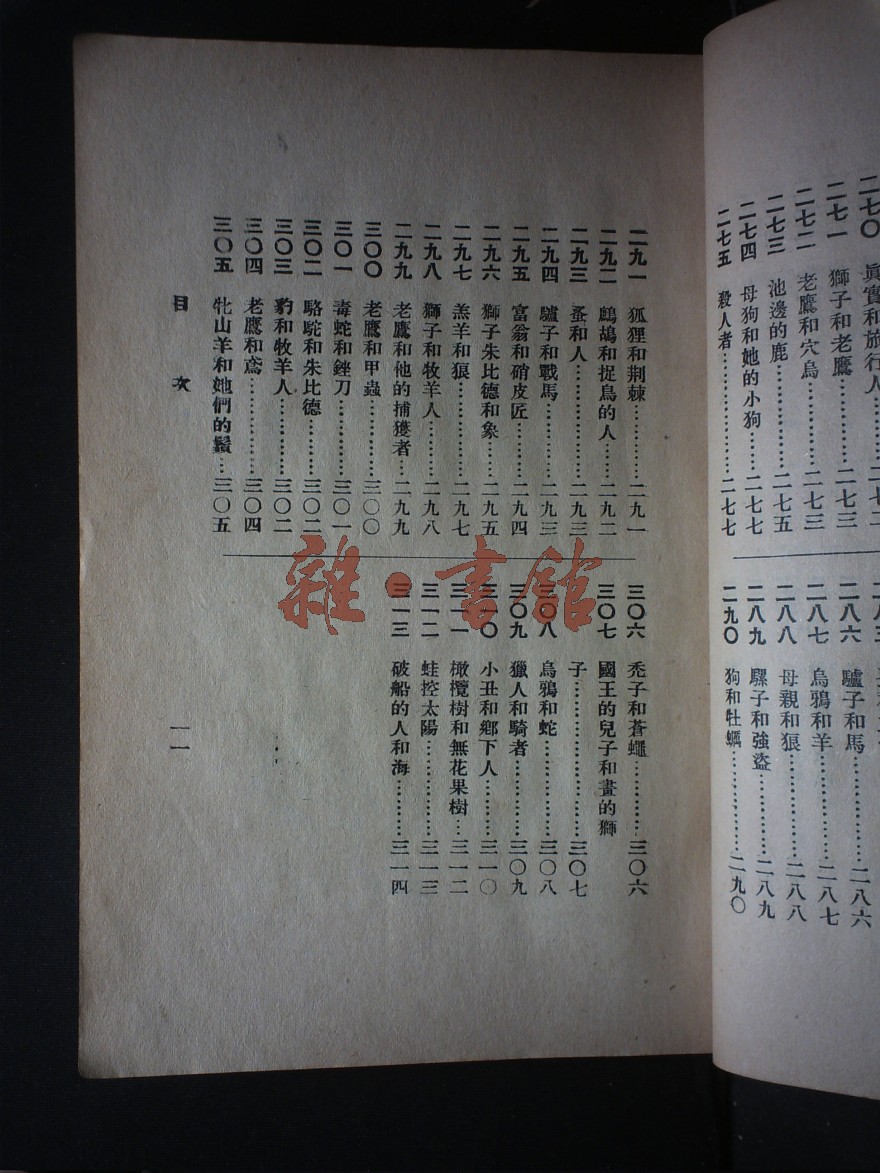 二七〇 眞實和旅行人……二七二
二七一 獅子和老鷹……二七三
二七二 老鷹和穴鳥……二七三
二七三 池邊的鹿……二七五
二七四 母狗和她的小狗……二七七
二七五 殺人者……二七七
二八六 驢子和馬……二八六
二八七 烏鴉和羊……二八七
二八八 母親和狼……二八八
二八九 騾子和強盜……二八九
二九〇 狗和牡蠣……二九〇
二九一 狐狸和荆棘……二九一
二九二 鷓鴣和捉鳥的人……二九二
二九三 蚤和人……二九三
二九四 驢子和戰馬……二九三
二九五 富翁和硝皮匠……二九四
二九六 獅子朱比德和象……二九五
二九七 羔羊和狼……二九七
二九八 獅子和牧羊人……二九八
二九九 老鷹和他的捕獲者……二九九
三〇〇 老鷹和甲蟲……三〇〇
三〇一 毒蛇和銼刀……三〇一
三〇二 駱駝和朱比德……三〇二
三〇三 豹和牧羊人……三〇二
三〇四 老鷹和鳶……三〇四
三〇五 牝山羊和她們的鬚……三〇五
三〇六 禿子和蒼蠅……三〇六
三〇七 國王的兒子和畫的獅
子……三〇七
三〇八 烏鴉和蛇……三〇八
三〇九 獵人和騎者……三〇九
三一〇 小丑和鄉下人……三一〇
三一一 橄欖樹和無花果樹……三一二
三一二 蛙控太陽……三一三
三一三 破船的人和海……三一四
目次
一一
雜·書館